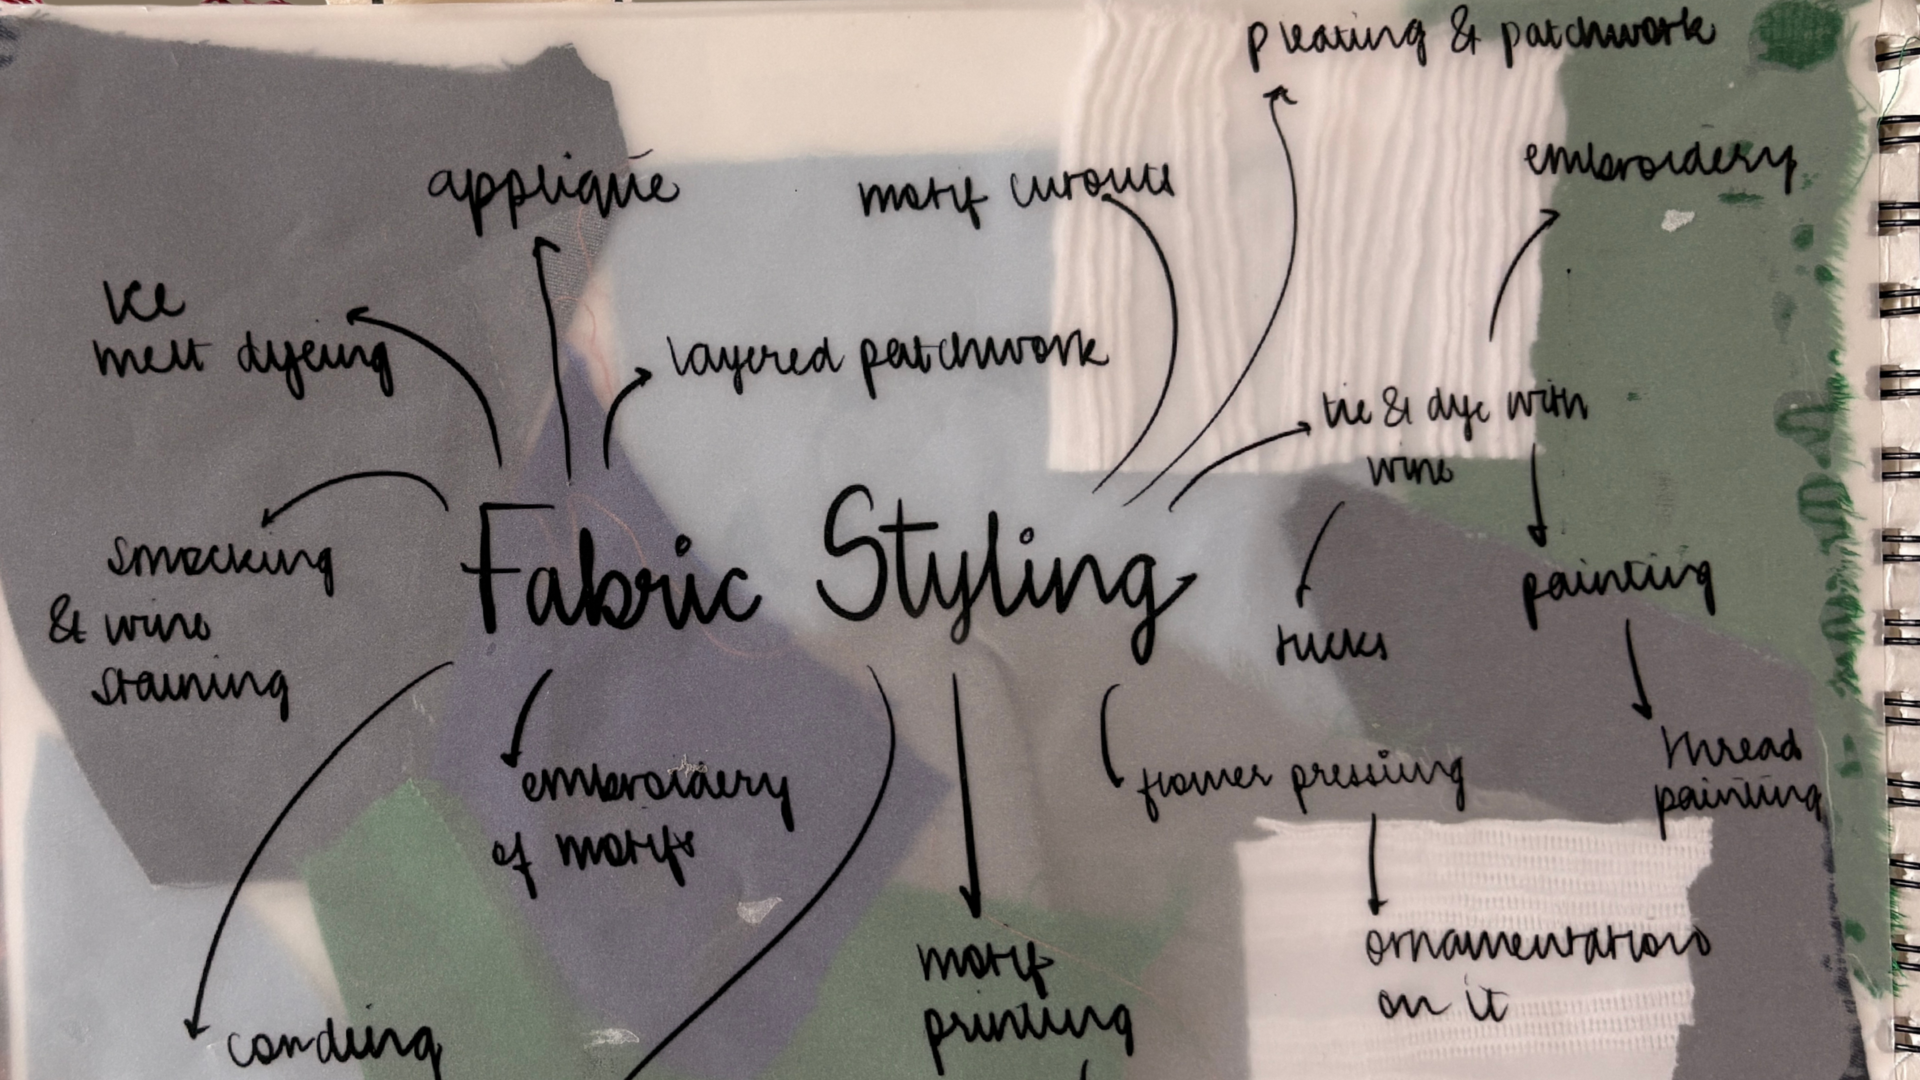 pleating & patchwork
embroidery
appliqué
motif cutouts
Ice
melt dyeing
layered patchwork
tie & dye with
wine
Fabric Styling
smocking
& wine
staining
tucks
painting
thread
painting
embroidery
of motifs
flower pressing
ornamentation
on it
motif
printing
cording